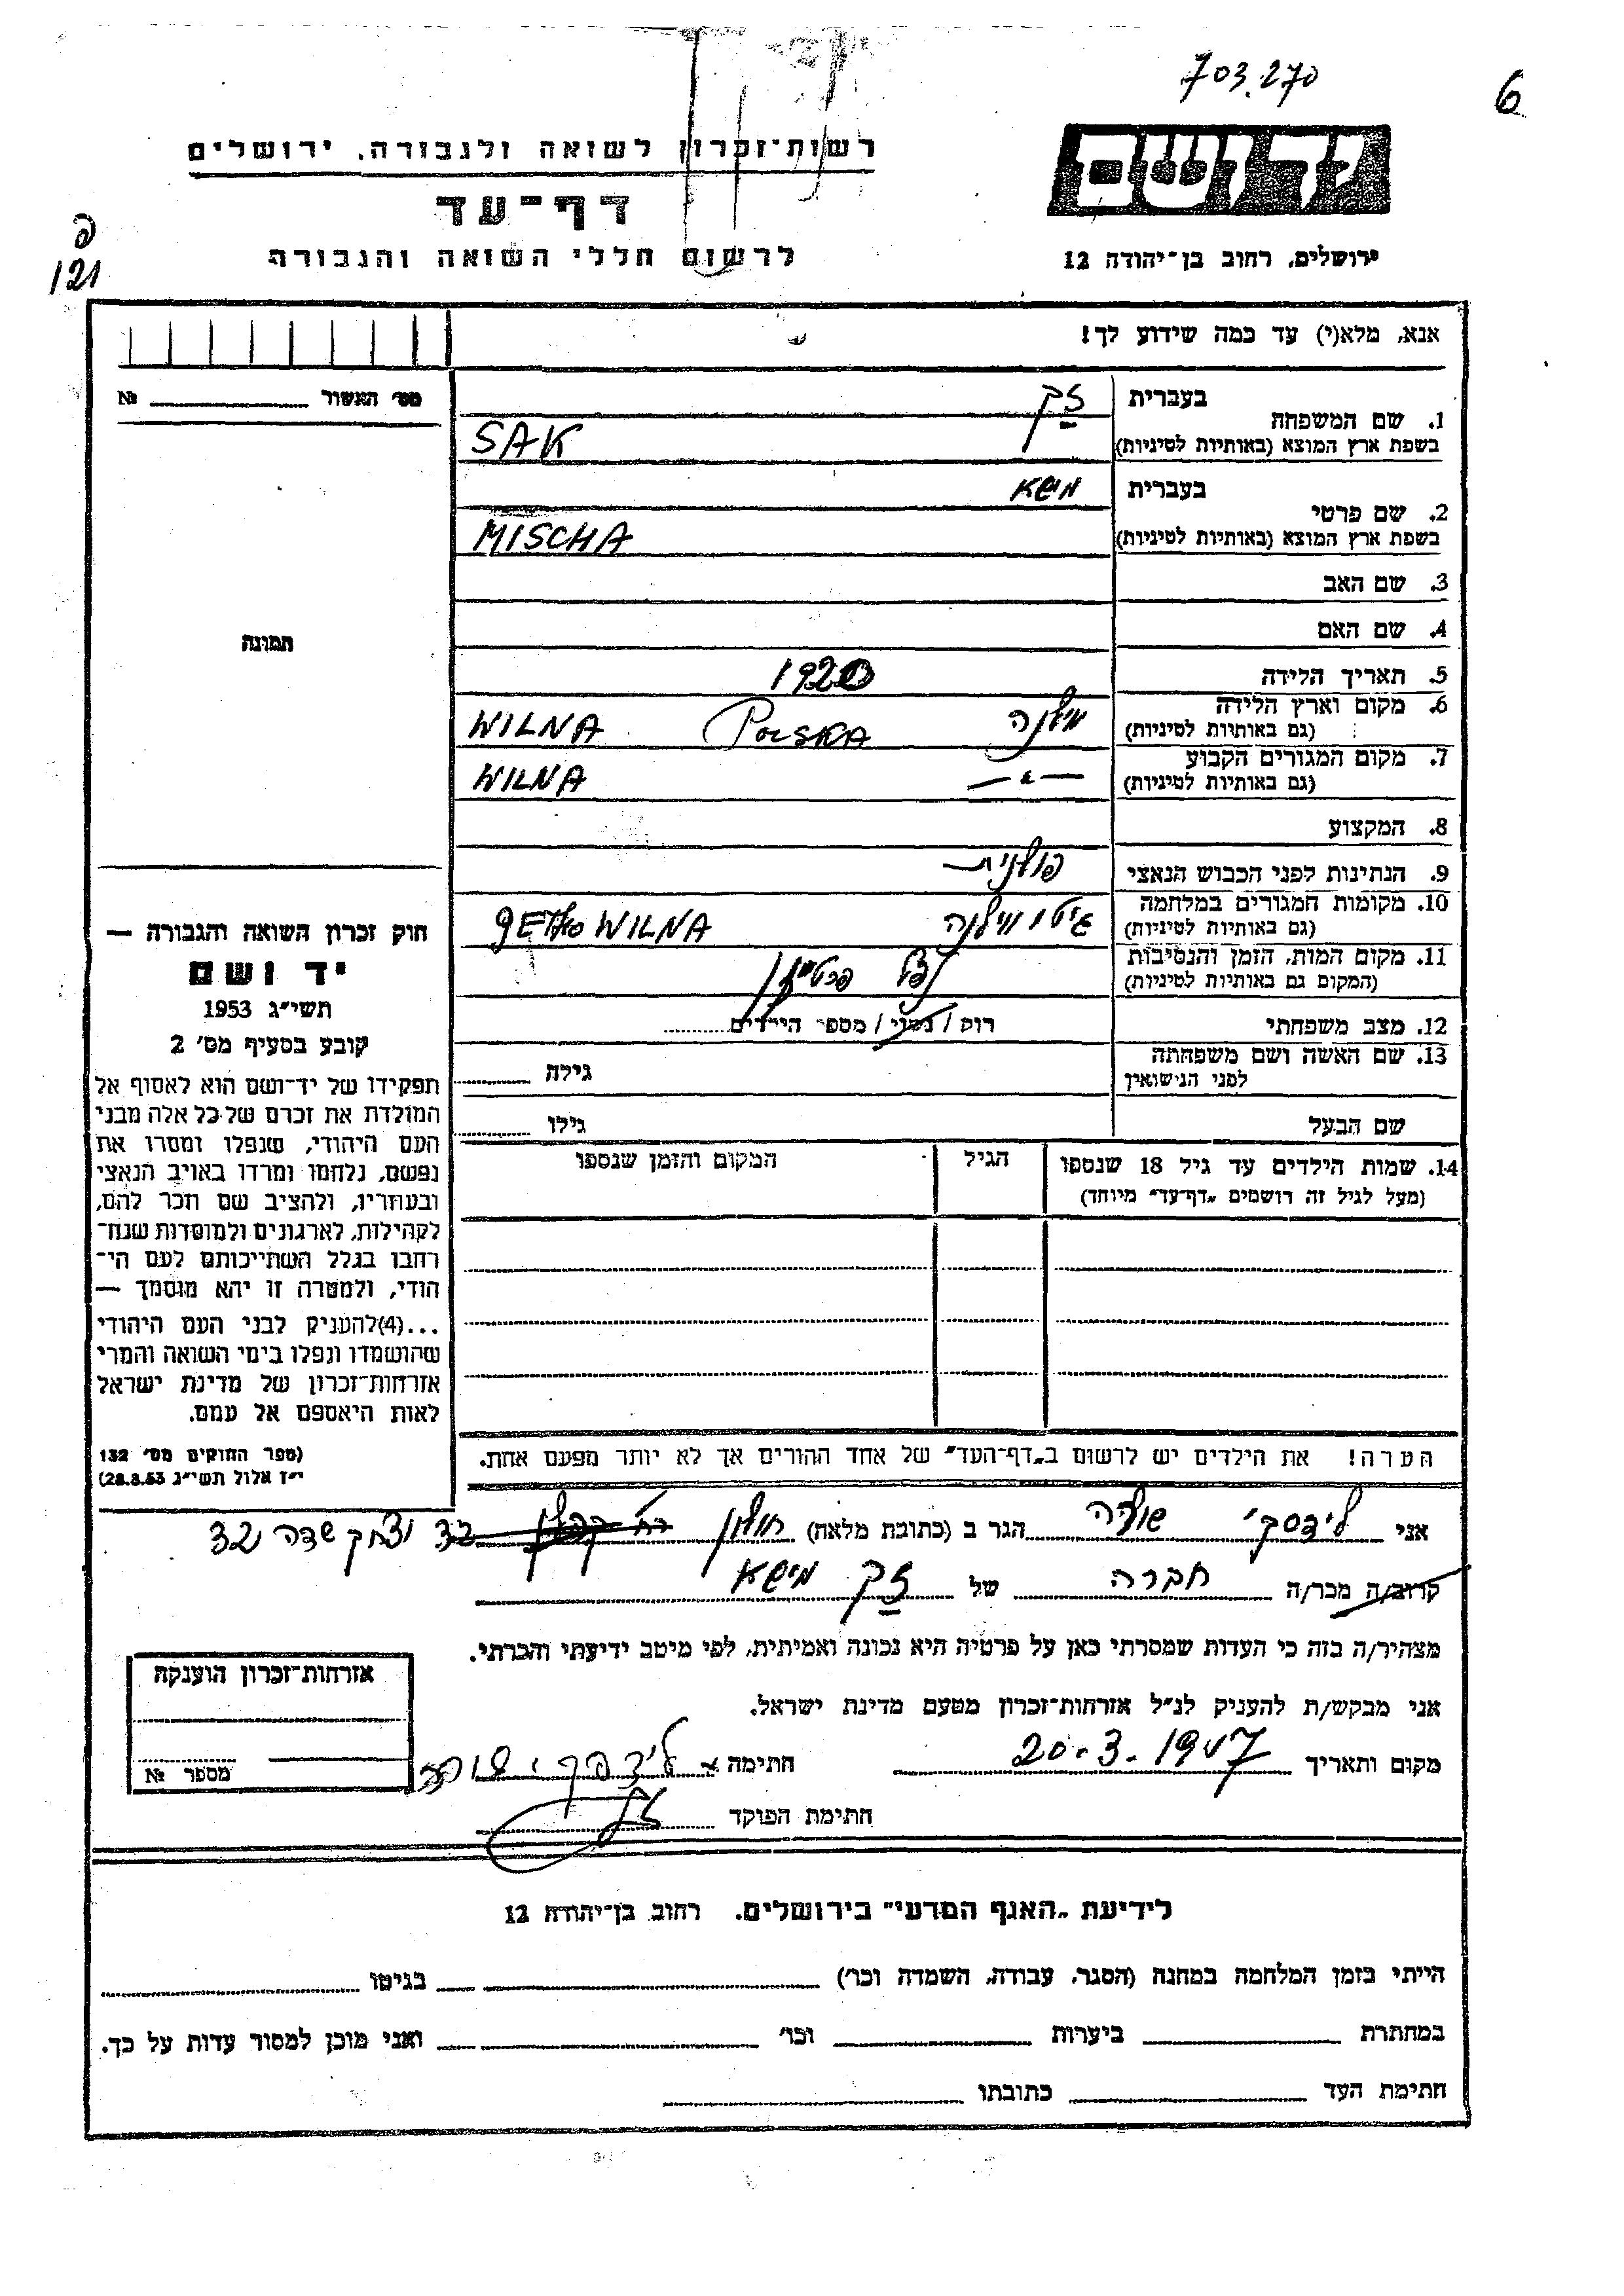 703.270
6
יד ושם
רשות־זכרון לשואה ולגבורה, ירושלים
דף־עד
לרשום חללי השואה והגבורה
ירושלים, רחוב בן־יהודה 12
פ
121
אנא, מלא(י) עד כמה שידוע לך!
מס׳ האשור № ________
1. שם המשפחה בעברית זק
בשפת ארץ המוצא (באותיות לטיניות) SAK
2. שם פרטי בעברית מישא
בשפת ארץ המוצא (באותיות לטיניות) MISCHA
3. שם האב
4. שם האם
תמונה
5. תאריך הלידה 1920
6. מקום וארץ הלידה
(גם באותיות לטיניות) וילנה POLSKA WILNA
7. מקום המגורים הקבוע
(גם באותיות לטיניות) — " — WILNA
8. המקצוע
9. הנתינות לפני הכבוש הנאצי פולנית
10. מקומות המגורים במלחמה
(גם באותיות לטיניות) גיטו וילנה GETTO WILNA
11. מקום המות, הזמן והנסיבות
(המקום גם באותיות לטיניות) נפל פרטיזן
12. מצב משפחתי רווק / נשוי / מספר הילדים
13. שם האשה ושם משפחתה
לפני הנישואין גילה
שם הבעל גילו
14. שמות הילדים עד גיל 18 שנספו הגיל המקום והזמן שנספו
(מעל לגיל זה רושמים „דף־עד״ מיוחד)
חוק זכרון השואה והגבורה —
יד ושם
תשי״ג 1953
קובע בסעיף מס׳ 2
תפקידו של יד־ושם הוא לאסוף אל
המולדת את זכרם של כל אלה מבני
העם היהודי, שנפלו ומסרו את
נפשם, נלחמו ומרדו באויב הנאצי
ובעוזריו, ולהציב שם וזכר להם,
לקהילות, לארגונים ולמוסדות שנח־
רבו בגלל השתייכותם לעם הי־
הודי, ולמטרה זו יהא מוסמך —
...(4)להעניק לבני העם היהודי
שהושמדו ונפלו בימי השואה והמרי
אזרחות־זכרון של מדינת ישראל
לאות היאספם אל עמם.
(ספר החוקים מס׳ 132
י״ז אלול תשי״ג 28.8.53)
הערה! את הילדים יש לרשום ב„דף־העד״ של אחד ההורים אך לא יותר מפעם אחת.
אני לידסקי שולה הגר ב (כתובת מלאה) חולון יצחק שדה 32
קרוב/ה מכר/ה חברה של זק מישא
מצהיר/ה בזה כי העדות שמסרתי כאן על פרטיה היא נכונה ואמיתית, לפי מיטב ידיעתי והכרתי.
אני מבקש/ת להעניק לנ״ל אזרחות־זכרון מטעם מדינת ישראל.
מקום ותאריך 20.3.1957 חתימה לידסקי שולה
חתימת הפוקד
אזרחות־זכרון הוענקה
מספר №
לידיעת „האגף המדעי״ בירושלים, רחוב בן־יהודה 12
הייתי בזמן המלחמה במחנה (הסגר, עבודה, השמדה וכו׳) ________ בגיטו ________
במחתרת ________ ביערות ________ וכו׳ ________ ואני מוכן למסור עדות על כך.
חתימת העד ________ כתובתו ________